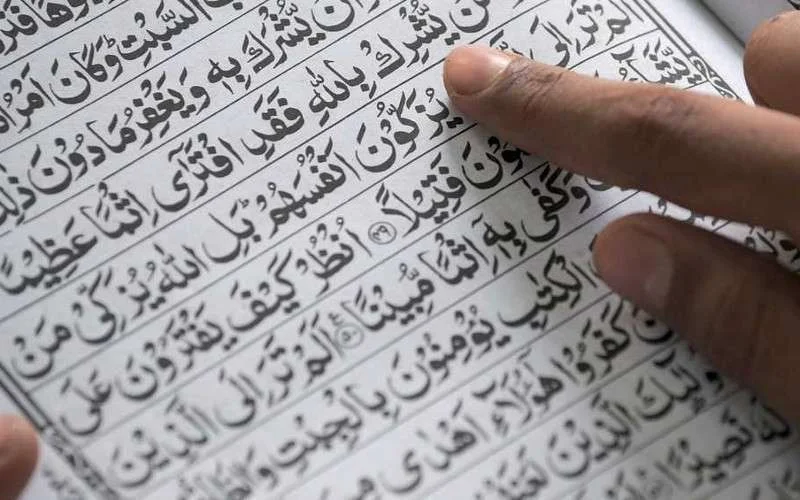 السَّبْتِ وَكَانَ اَمْرُ
اَنْ يُّشْرَكَ بِهٖ وَيَغْفِرُ مَا دُوْنَ ذٰلِ
يُّشْرِكْ بِاللّٰهِ فَقَدِ افْتَرٰٓى اِثْمًا عَظِيْمًا
لَمْ تَرَ اِلَى يُزَكُّوْنَ اَنْفُسَهُمْ بَلِ اللّٰهُ يُزَكِّىْ مَنْ
فَتِيْلًا ﴿۴۹﴾ اُنْظُرْ كَيْفَ يَفْتَرُوْنَ عَلَى
وَكَفٰى بِهٖٓ اِثْمًا مُّبِيْنًا ﴿۵۰﴾ اَلَمْ تَرَ اِلَى الَّذِيْنَ
الْكِتٰبِ يُؤْمِنُوْنَ بِالْجِبْتِ
كَفَرُوْا هٰٓؤُلَآءِ اَهْدٰى
ولٰٓئِكَ الَّذِيْنَ
لَهٗ نَصِيْرًا